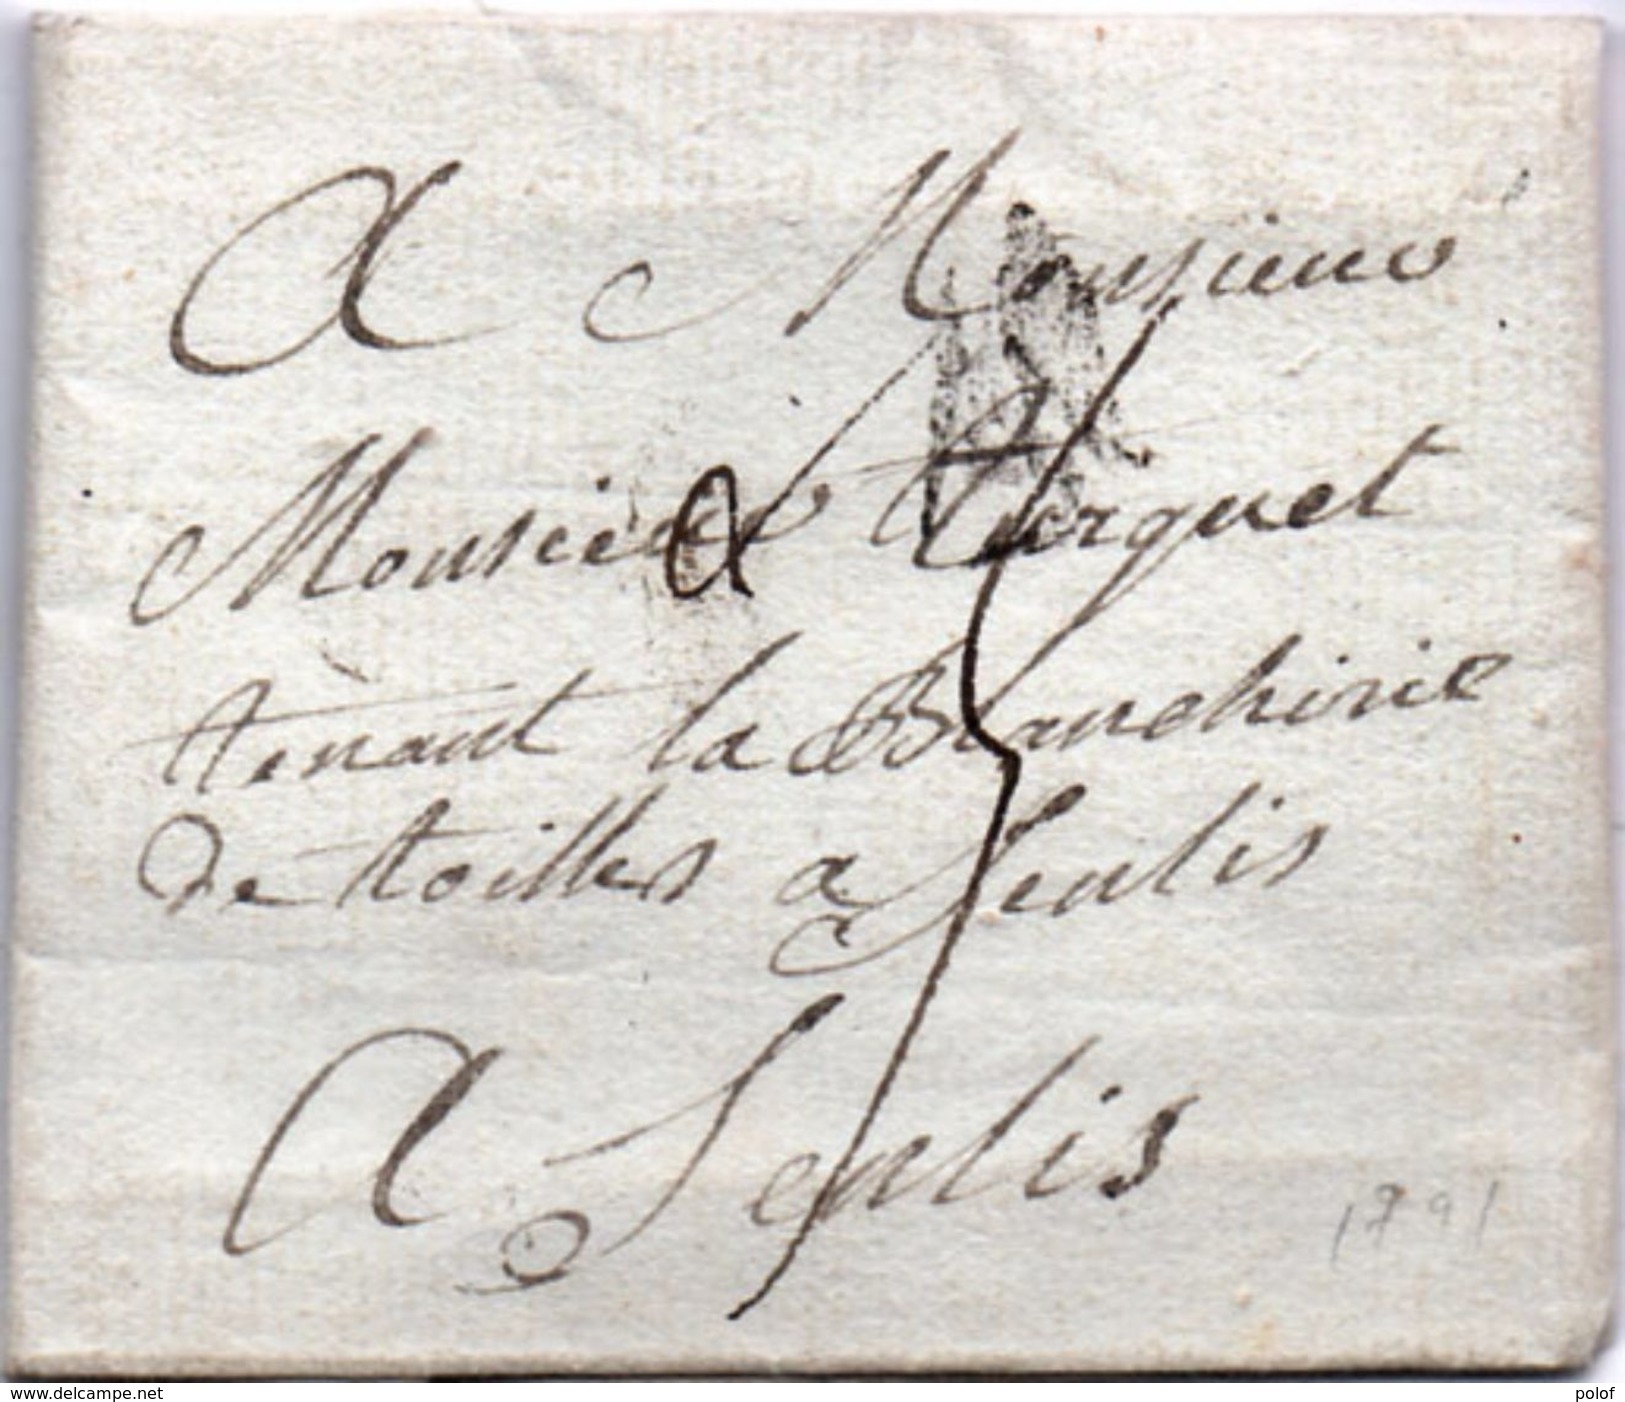 A Monsieur
Monsieur Turquet
tenant la Blanchirie
de toilles a Senlis
A Senlis
1791
www.delcampe.net
polof